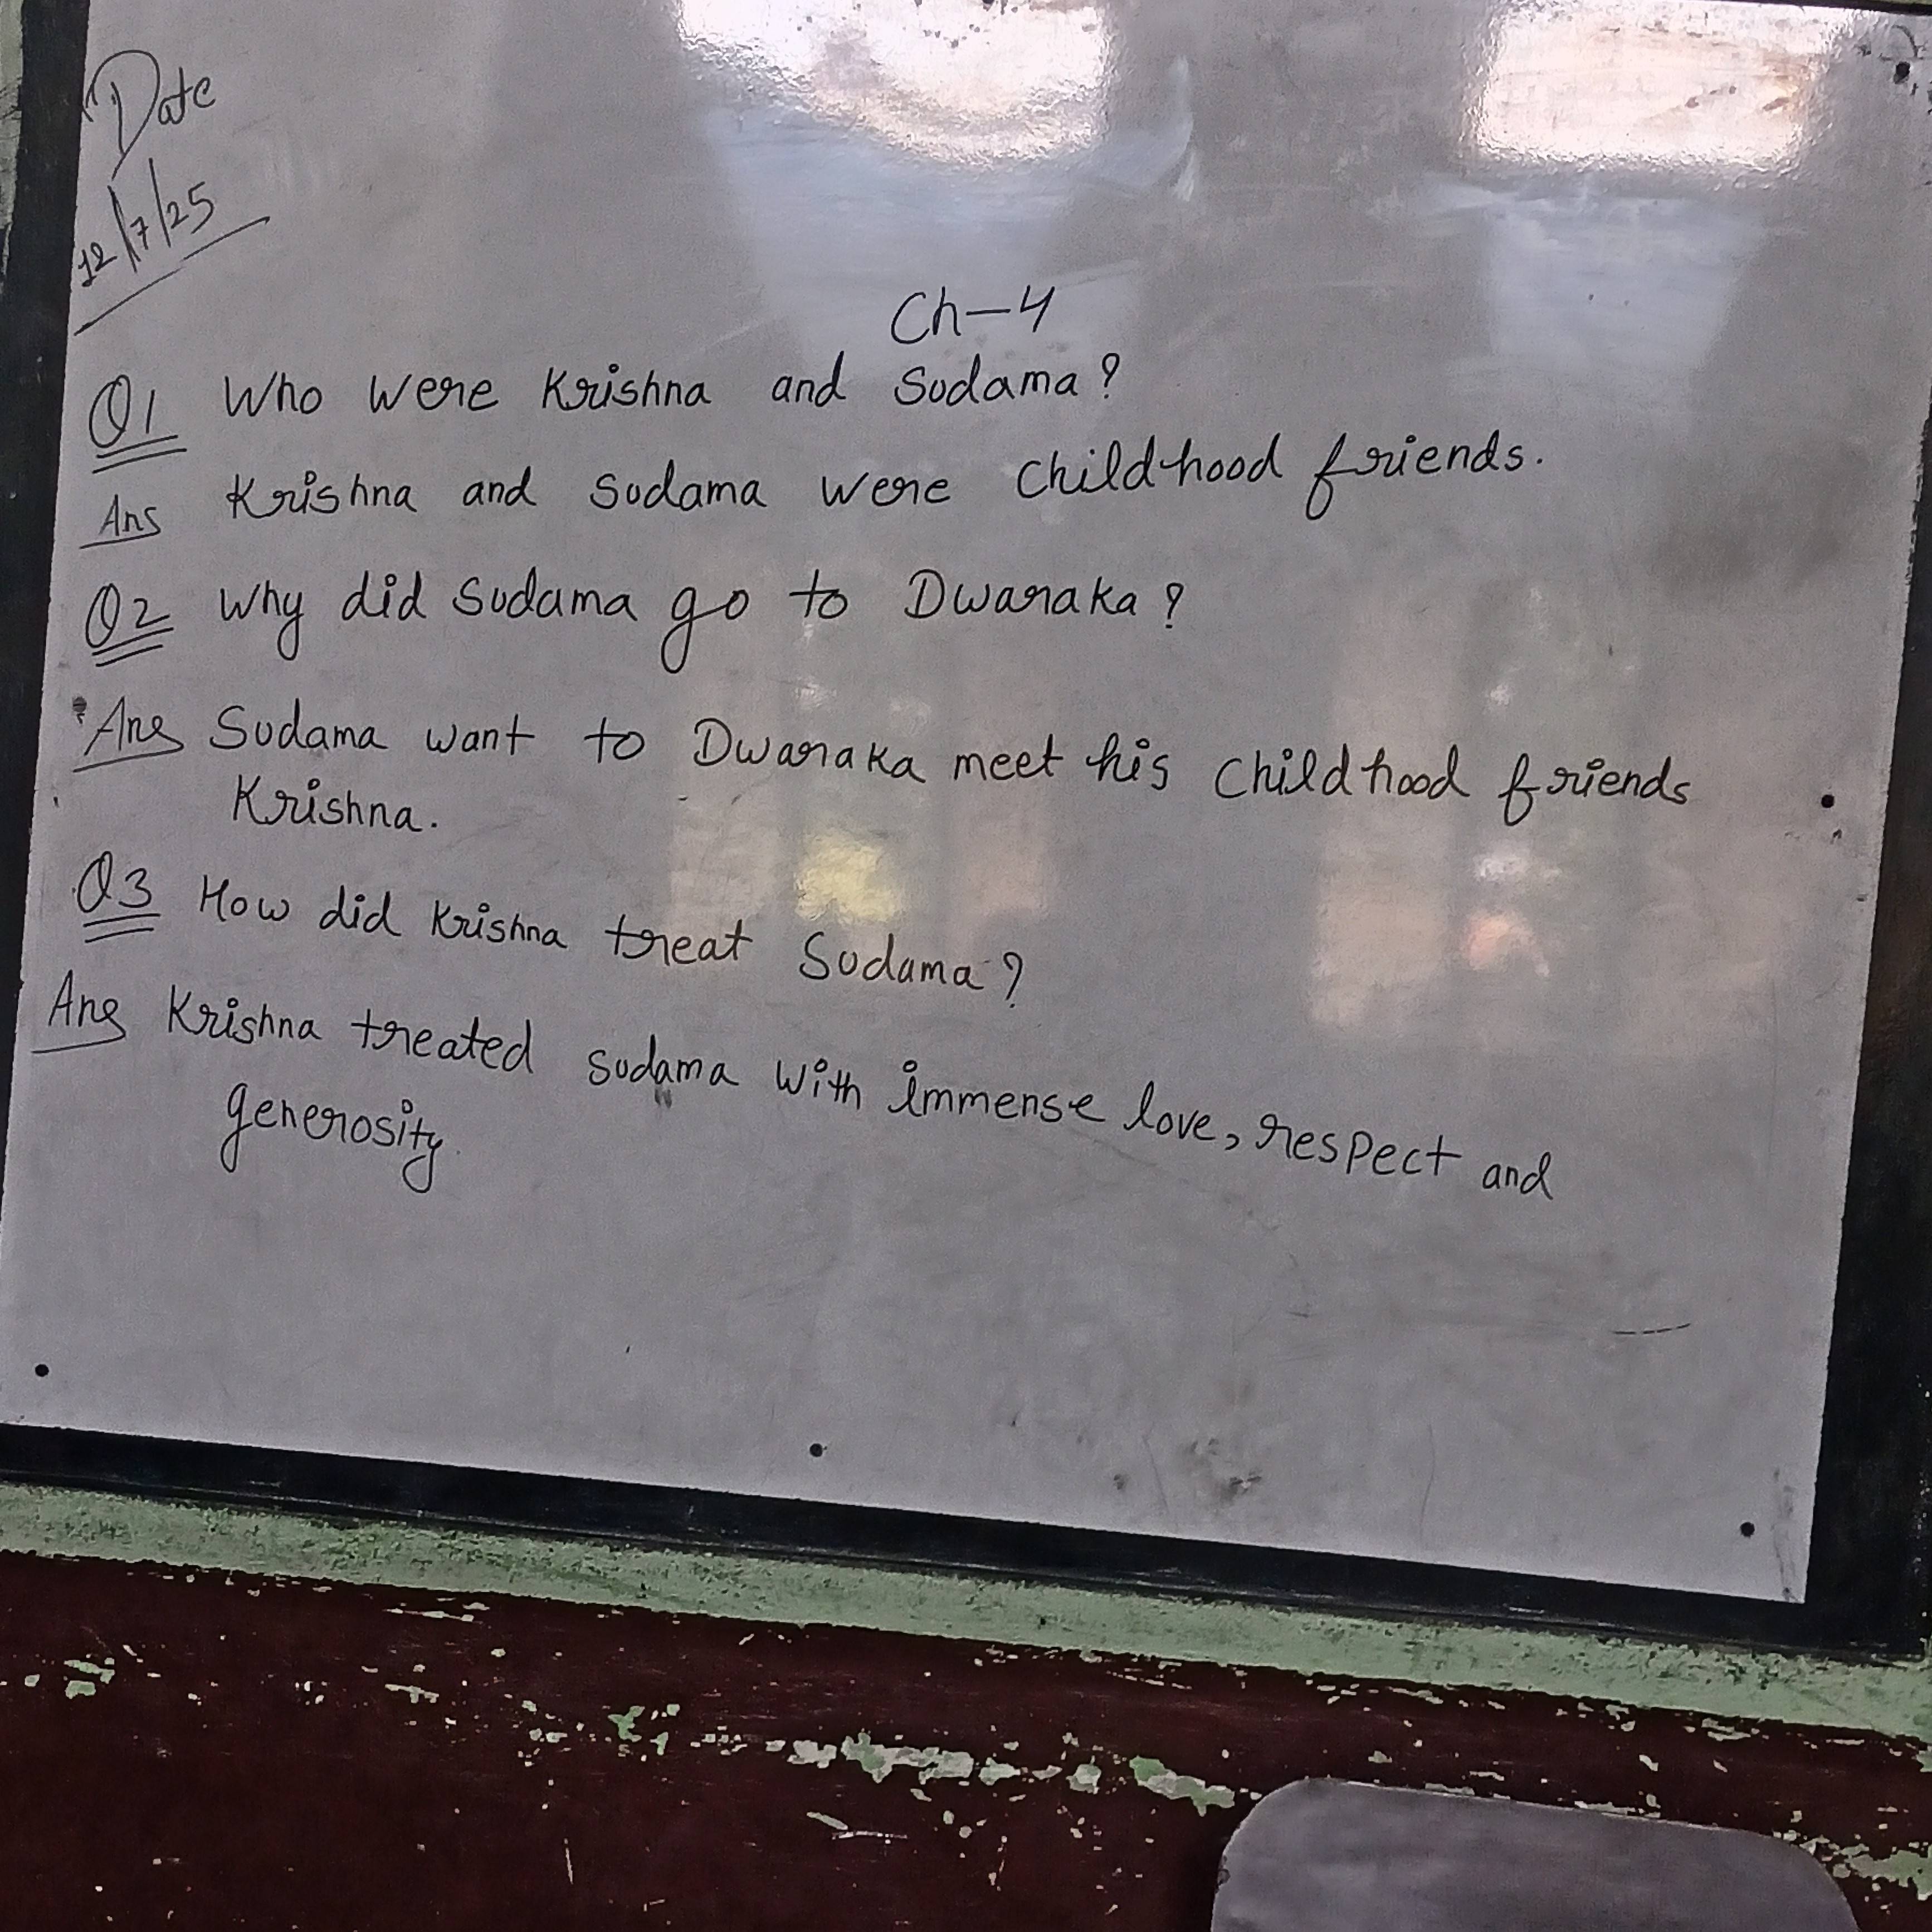 Date
12/7/25
Ch-4
Q1 Who were Krishna and Sudama?
Ans Krishna and Sudama were childhood friends.
Q2 Why did Sudama go to Dwaraka?
Ans Sudama want to Dwaraka meet his childhood friends
Krishna.
Q3 How did Krishna treat Sudama?
Ans Krishna treated Sudama with immense love, respect and
generosity